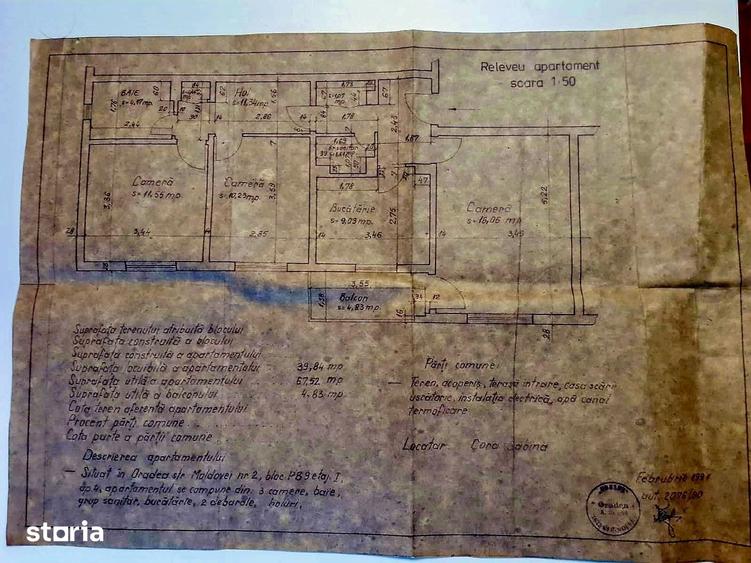 Releveu apartament
scara 1:50
BAIE
s=4,17mp.
2,44
Hol
s=11,34mp.
2,86
1,78
1,67
2,45
Cameră
s=11,55 mp.
3,36
3,44
Cameră
s=10,23mp.
3,59
2,85
1,69
1,78
Bucătărie
s=9,03mp.
2,75
3,46
Cameră
s=16,06 mp
3,45
28
14
14
14
47
3,55
Balcon
s=4,83mp.
12
16
28
Suprafața terenului atribuită blocului
Suprafața construită a blocului
Suprafața construită a apartamentului
Suprafața locuibilă a apartamentului 39,84 mp
Suprafața utilă a apartamentului 67,52 mp
Suprafața utilă a balconului 4,83 mp
Cota teren aferentă apartamentului
Procent părți comune
Cota parte a părții comune
Descrierea apartamentului
— Situat în Oradea str Moldovei nr 2, bloc PB9 etaj I,
ap.4, apartamentul se compune din 3 camere, baie,
grup sanitar, bucătărie, 2 debarale, holuri,
Părți comune:
— Teren, acoperiș, terasă intrare, casa scării
uscătorie, instalația electrică, apă canal
termoficare
Locatar Cora Sabina
Februarie 1991
aut.
Oradea
storia